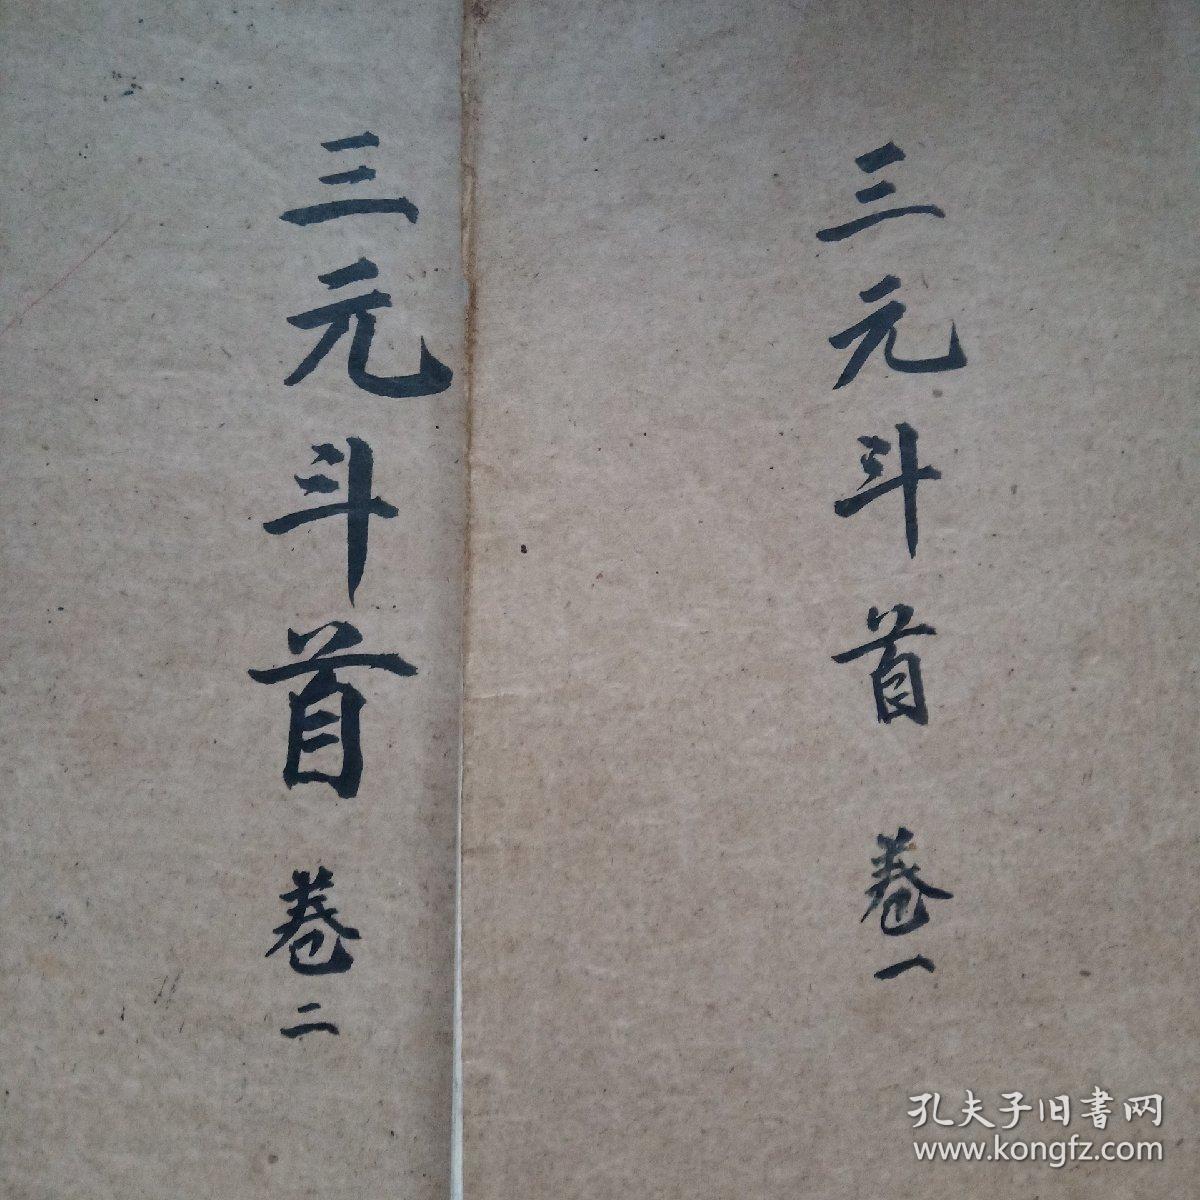 三元斗首 卷一
三元斗首 卷二
孔夫子旧書网
www.kongfz.com